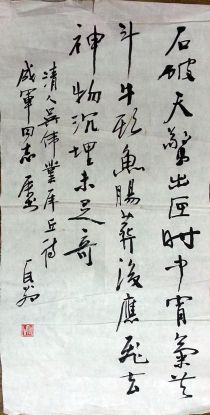 石破天驚出匣时中宵氣共
斗牛期魚腸葬後應飛去
神物沉埋未足奇
清人吳偉業虎丘詩
軍同志屬